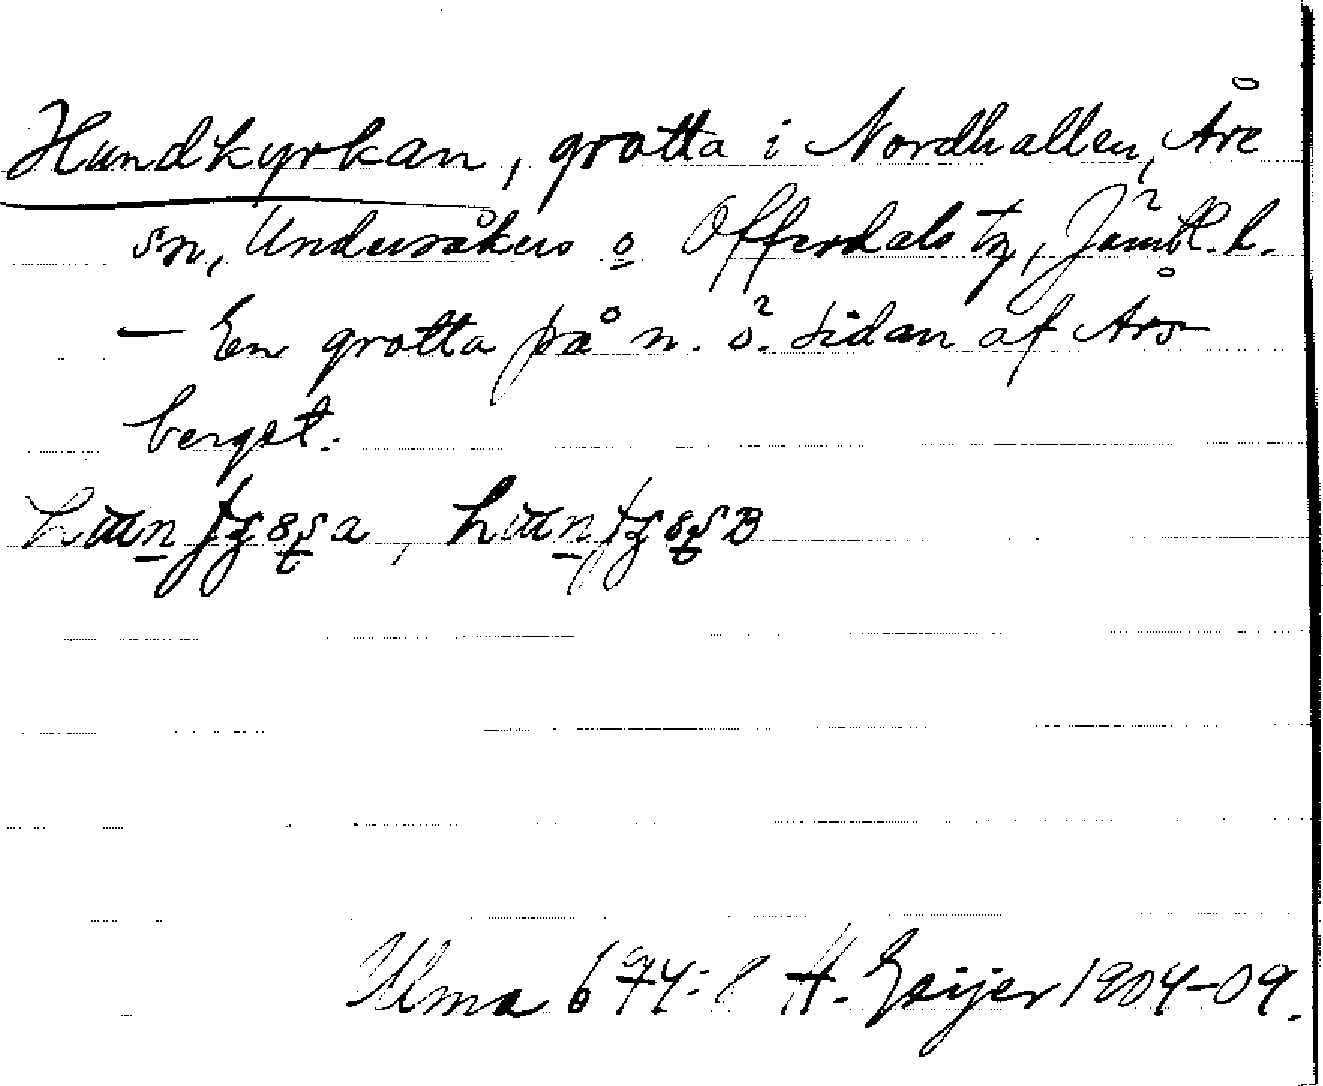 Hundkyrkan, grotta i Nordhallen, Åre
sn, Undersåkers o Offerdals tg, Jämtl. l.
— En grotta på n. ö. sidan af Åre-
berget.
Ulma 674: H. Geijer 1904-09.